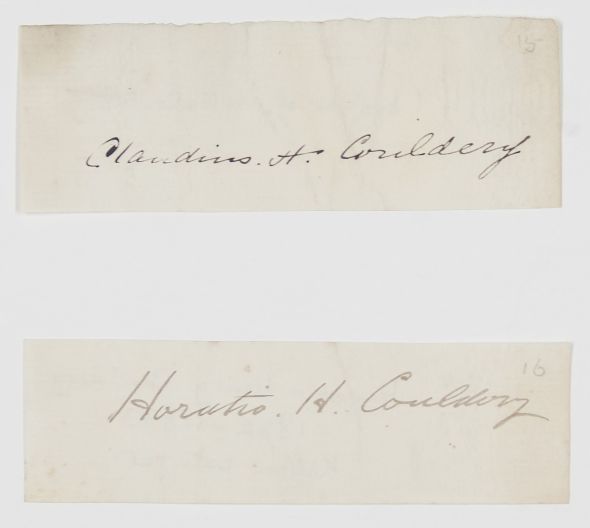 15
Claudius. H. Couldery
16
Horatio. H. Couldery